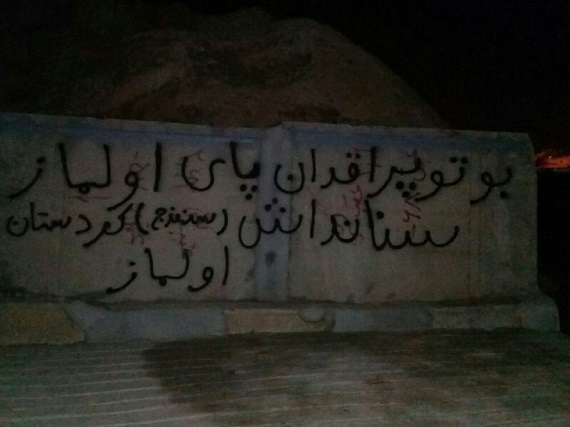 بو توپراقدان پای اولماز
سنانداش (سنندج) کردستان
اولماز